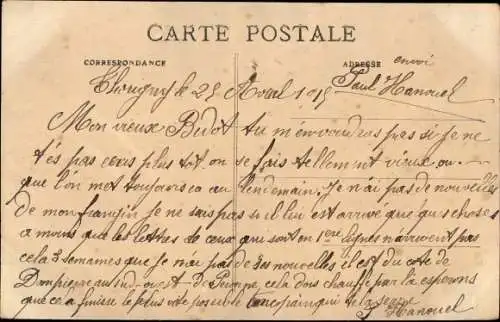 CARTE POSTALE
CORRESPONDANCE
ADRESSE envoi
le 25 Avril 1915 Paul Hanouel
Mon vieux Bidot tu m'en voudras pas si je ne
t'es pas ecris plus tot on se fais tellement vieux ou
que l'on met toujours ca au lendemain. Je n'ai pas de nouvelles
de mon frangin je ne sais pas s'il lui est arrivé quelques choses
a moins que les lettres de ceux qui sont en 1ere lignes n'arrivent pas
cela 3 semaines que je n'ai pas de ses nouvelles il est du coté de
Dompierre au sud-ouest de Peronne, cela dois chauffer par la esperons
que ca finisse le plus vite possible ton copain qui te la serre
P Hanouel